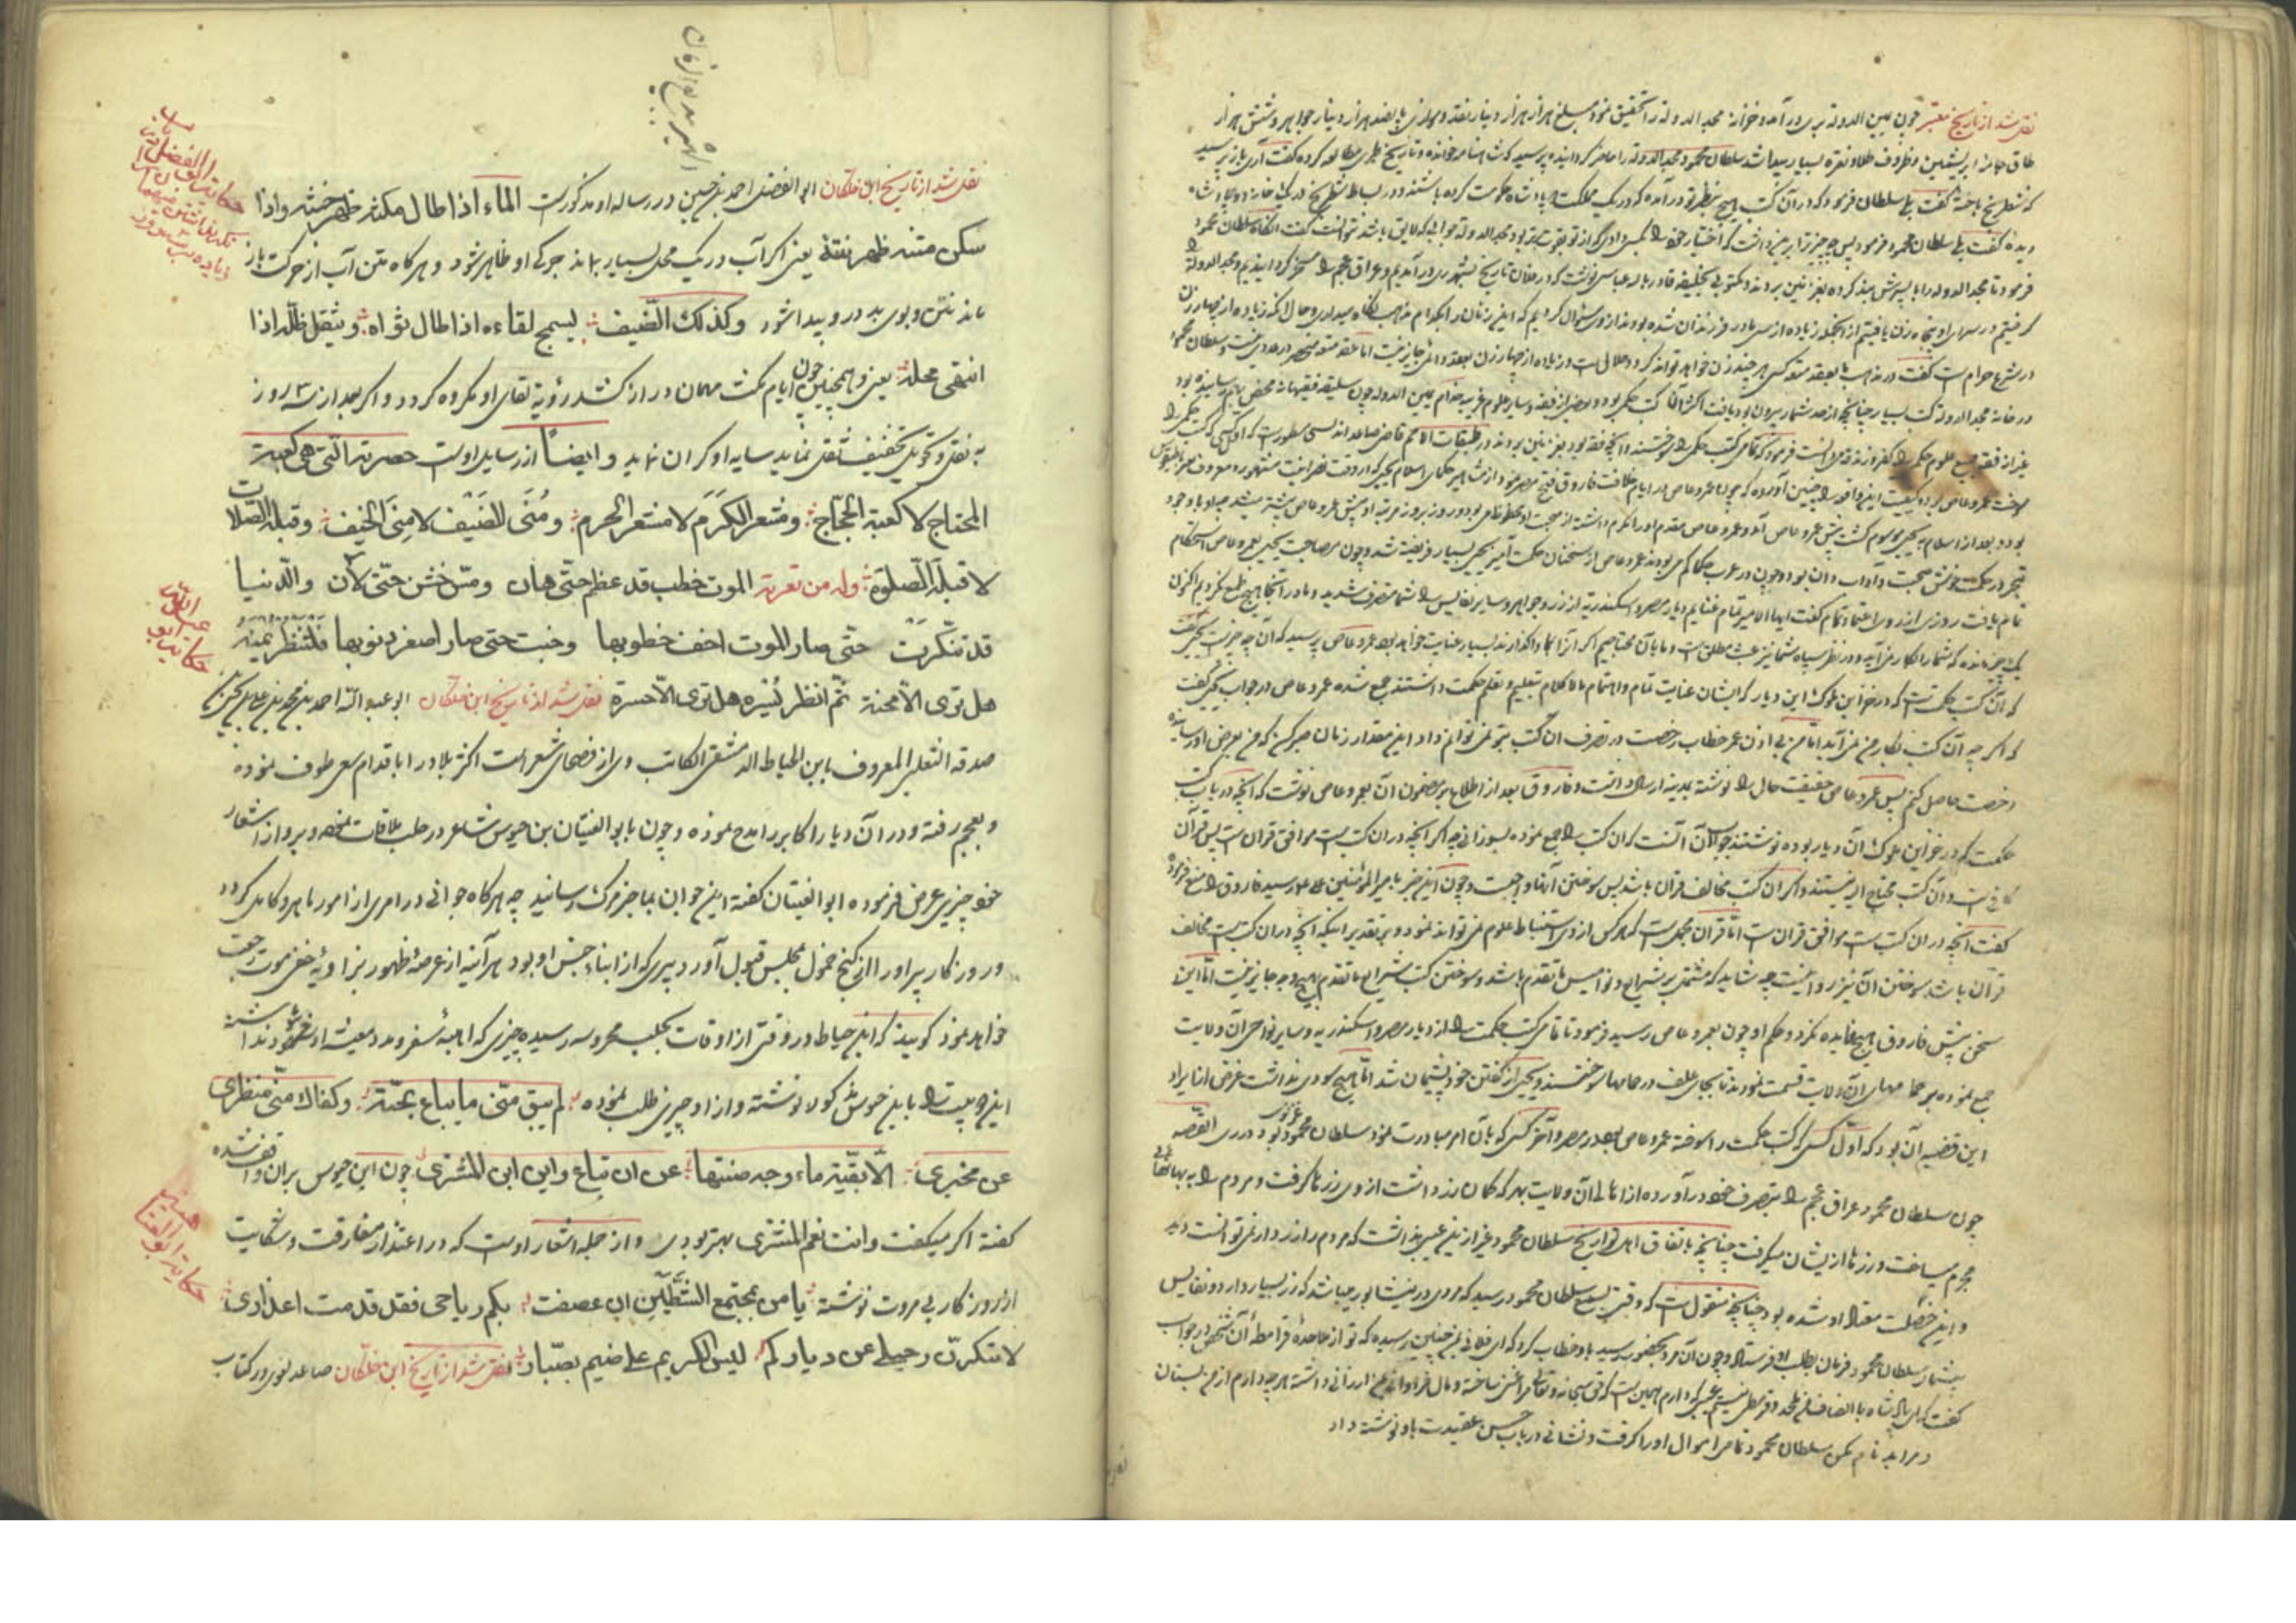 نقل شد از تاریخ معتبر چون یمین الدوله بری در آمد و خزانه مجد الدوله را تحقیق نمود مبلغ هزار هزار دینار نقد و موازی پانصد هزار دینار جواهر و شش هزار
طاق جامه ابریشمین و ظروف طلا و نقره بسیار پیدا شد سلطان محمود مجد الدوله را حاضر گردانیده پرسید که شاهنامه خوانده و تاریخ طبری مطالعه کرده گفت آری باز پرسید
که شطرنج باخته گفت بلی سلطان فرمود که در آن کتب هیچ بنظر تو در آمده که در یک مملکت دو پادشاه حکومت کرده باشند و در بساط شطرنج در یک خانه دو پادشاه
دیده گفت نی سلطان محمود فرمود پس چه چیز ترا برین داشت که اختیار خود را بکسی دادی که از تو بقوت تر بود مجد الدوله جوابی که لایق باشد نتوانست گفت آنگاه سلطان محمود
فرمود تا مجد الدوله را با پسرش بند کرده بغزنین بردند و مکتوبی بخلیفه قادر بالله عباسی نوشت که در فلان تاریخ بشهر ری در آمدیم و عراق عجم را مسخر گردانیدیم و مجد الدوله را
گرفتیم در سرای او پنجاه زن یافتیم از آنجمله زیاده از سی مادر فرزندان شده بودند از وی سؤال کردیم که این زنان را بکدام مذهب نگاه میداری و حال آنکه زیاده از چهار زن
در شرع حرام است گفت در مذهب ما بعقد متعه کسی هر چند زن خواهد تواند کرد و حلال است و زیاده از چهار زن بعقد دائمی جایز نیست اما عقد متعه منحصر در عددی نیست و سلطان محمود
در خانه مجد الدوله کتب بسیار چنانچه از حد شمار بیرون بود یافت اکثر آن کتب حکمی بود و بعضی از فقه و سایر علوم غریبه
غیر از فقه جمیع علوم حکمی را کفر و زندقه میدانست فرمود که تمامی کتب حکمی را سوختند و آنچه فقه بود بغزنین بردند در طبقات الامم قاضی صاعد اندلسی مسطور است که اول کسی که کتب حکمی را
سوخت عمرو عاص بود و کیفیت این واقعه را چنین آورده که چون عمرو عاص در ایام خلافت فاروق فتح مصر نمود از مشاهیر حکمای اسلام یحیی
بود و بعد از اسلام به یحیی موسوم گشت پیش عمرو عاص آمد و عمرو عاص مقدم او را مکرم داشته از صحبت او محظوظ می بود و روز بروز مرتبه او پیش عمرو عاص بیشتر میشد
تبحر در حکمت خوش صحبت و آداب دان بود و چون در عرب حکما کم می بودند عمرو عاص از سخنان حکمت آمیز یحیی بسیار فریفته شد و چون مصاحبت یحیی بعمرو عاص استحکام
تمام یافت روزی از روی اعتماد تمام گفت ایها الامیر تمام غنایم دیار مصر و اسکندریه از زر و جواهر و سایر نفایس را شما متصرف شدید و ما در آنجا هیچ طمع نکردیم اکنون
یک چیز مانده که شما را بکار نمی آید و در نظر سپاه شما نیز عبث مطلق است و ما بآن محتاجیم اگر آنرا بما واگذارند بسیار عنایت خواهد بود عمرو عاص پرسید که آن چه چیز است یحیی گفت
که آن کتب حکمت است که در خزاین ملوک این دیار که ایشان عنایت تمام و اهتمام مالاکلام بتعلیم و تعلم حکمت داشتند جمع شده عمرو عاص در جواب یحیی گفت
که اگر چه آن کتب بکار من نمی آید اما من بی اذن عمر خطاب رخصت در تصرف آن کتب بتو نمی توانم داد این مقدار زمان صبر کن که من بعرض او رسانیده
رخصت حاصل کنم پس عمرو عاص حقیقت حال را نوشته بمدینه ارسال داشت و فاروق بعد از اطلاع بر مضمون آن بعمرو عاص نوشت که آنچه در باب کتب
حکمت که در خزاین ملوک آن دیار بوده نوشتند جواب آن آنست که آن کتب را جمع نموده بسوزانی چه اگر آنچه در آن کتب است موافق قرآن است پس قرآن
کافی است و آن کتب محتاج الیه نیستند و اگر آن کتب مخالف قرآن باشد پس سوختن آنها واجبست و چون این خبر بامیر المؤمنین علی رسید فاروق را منع فرموده
گفت آنچه در آن کتب است موافق قرآن است اما قرآن مجمل است که هر کس از وی استنباط علوم نمی تواند نمود و بر تقدیر اینکه آنچه در آن کتب است مخالف
قرآن باشد سوختن آن نیز روا نیست چه شاید که مشتمل بر شرایع و نوامیس ما تقدم باشد و سوختن کتب شرایع ما تقدم بهیچ وجه جایز نیست اما این
سخن پیش فاروق هیچ فایده نکرد و حکم او چون بعمرو عاص رسید فرمود تا تمامی کتب حکمت را از دیار مصر و اسکندریه و سایر نواحی آن ولایت
جمع نموده بر حمامهای آن ولایت قسمت نمودند تا بجای علف در حمامها سوختند و یحیی از گفتن خود پشیمان شد اما هیچ سودی نداشت غرض از ایراد
این قضیه آن بود که اول کسی که کتب حکمت را سوخته عمرو عاص بود در مصر و آخر کسی که بآن امر مبادرت نمود سلطان محمود غزنوی بود در ری القصه
چون سلطان محمود عراق عجم را بتصرف خود در آورده از اهالی آن ولایت بهر که گمان زر داشت از وی زرها گرفت و مردم را به بهانهای
مجرم میساخت و زرها از ایشان میگرفت چنانچه باتفاق اهل تواریخ سلطان محمود غیر ازین عیبی نداشت که مردم را زردار نمی توانست دید
و این خصلت معتاد او شده بود چنانچه منقول است که وقتی بسمع سلطان محمود رسید که مردی در نیشابور میباشد که زر بسیار دارد و نفایس
بیشمار سلطان محمود فرمان بطلب او فرستاد و چون آن مرد بحضور رسید باو خطاب کرد که ای فلانی بمن چنین رسیده که تو از ملاحده قرامطه آن شخص در جواب
گفت که ای پادشاه با انصاف من ملحد و قرمطی نیستم عیبی که دارم همین است که حق سبحانه و تعالی مرا غنی ساخته و مال فراوان بمن ارزانی داشته هر چه دارم از من بستان
و مرا بد نام مکن سلطان محمود تمامی اموال او را گرفت و نشانی در باب حسن عقیدت باو نوشته داد
نقل شد از تاریخ ابن خلکان ابو الفضل احمد بن حسین در رساله او مذکورست الماء اذا طال مکثه ظهر خبثه و اذا
سکن متنه ظهر نتنه یعنی اگر آب در یک محل بسیار بماند چرک او ظاهر شود و هر گاه متن آب از حرکت باز
ماند نتن و بوی بد در و پیدا شود و کذلك الضیف یسمج لقاءه اذا طال ثواه و یثقل ظله اذا
انتهی محله یعنی و همچنین چون ایام مکث مهمان دراز کشد رؤیة لقای او مکروه گردد و اگر بعد از سه روز
به نقل و تحویل تخفیف ثقل ننماید سایه او گران نماید و ایضا از رسایل اوست حضرته التی هی کعبة
المحتاج لا کعبة الحجاج و مشعر الکرم لا مشعر الحرم و منی الضیف لا منی الخیف و قبلة الصلات
لا قبلة الصلوة وله من تعزیة الموت خطب قد عظم حتی هان و مس خشن حتی لان و الدنیا
قد تنکرت حتی صار الموت اخف خطوبها و خبت حتی صار اصغر ذنوبها فلتنظر یمنة
هل تری الا محنة ثم انظر یسرة هل تری الا حسرة نقل شد از تاریخ ابن خلکان ابو عبد الله احمد بن محمد بن علی بن یحیی بن
صدقه الثعلبی المعروف بابن الخیاط الدمشقی الکاتب وی از فصحای شعراست اکثر بلاد را باقدام سعی طوف نموده
و بعجم رفته و در آن دیار اکابر را مدح نموده و چون بابو الفتیان بن حیوس شاعر در حلب ملاقات نموده و برو از اشعار
خود چیزی عرض فرموده ابو الفتیان گفته این جوان بما خبر مرگ رسانید چه هر گاه جوانی در امری از امور ماهر و کامل گردد
و روزگار پیر او را از کنج خمول بمجلس قبول آورد پیری که از ابناء جنس او بود هر آینه از عرصه ظهور بزاویه خفی موت رجعت
خواهد نمود گویند که این خیاط در وقتی از اوقات بحلب محروسه رسیده چیزی که اهبه سفر و مدد معیشت او شود نداشته
این دو بیت را بابن حیوس مذکور نوشته و از او چیزی طلب نموده لم یبق منی ما یباع بحبة و کفاك منی منظری
عن مخبری الا بقیة ماء وجه صنتها عن ان تباع و این این المشتری چون ابن حیوس بر آن واقف شده
گفته اگر میگفت و انت نعم المشتری بهتر بودی و از جمله اشعار اوست که در اعتذار مفارقت و شکایت
از روزگار بی مروت نوشته یا من بمجتمع الشطین ان عصفت بکم ریاحی فقد قدمت اعذاری
لا تنکرن رحیلی عن دیارکم لیس الکریم علی ضیم بصبار نقل شد از تاریخ ابن خلکان صاعد لغوی در کتاب
حکایة ابو عبد الله